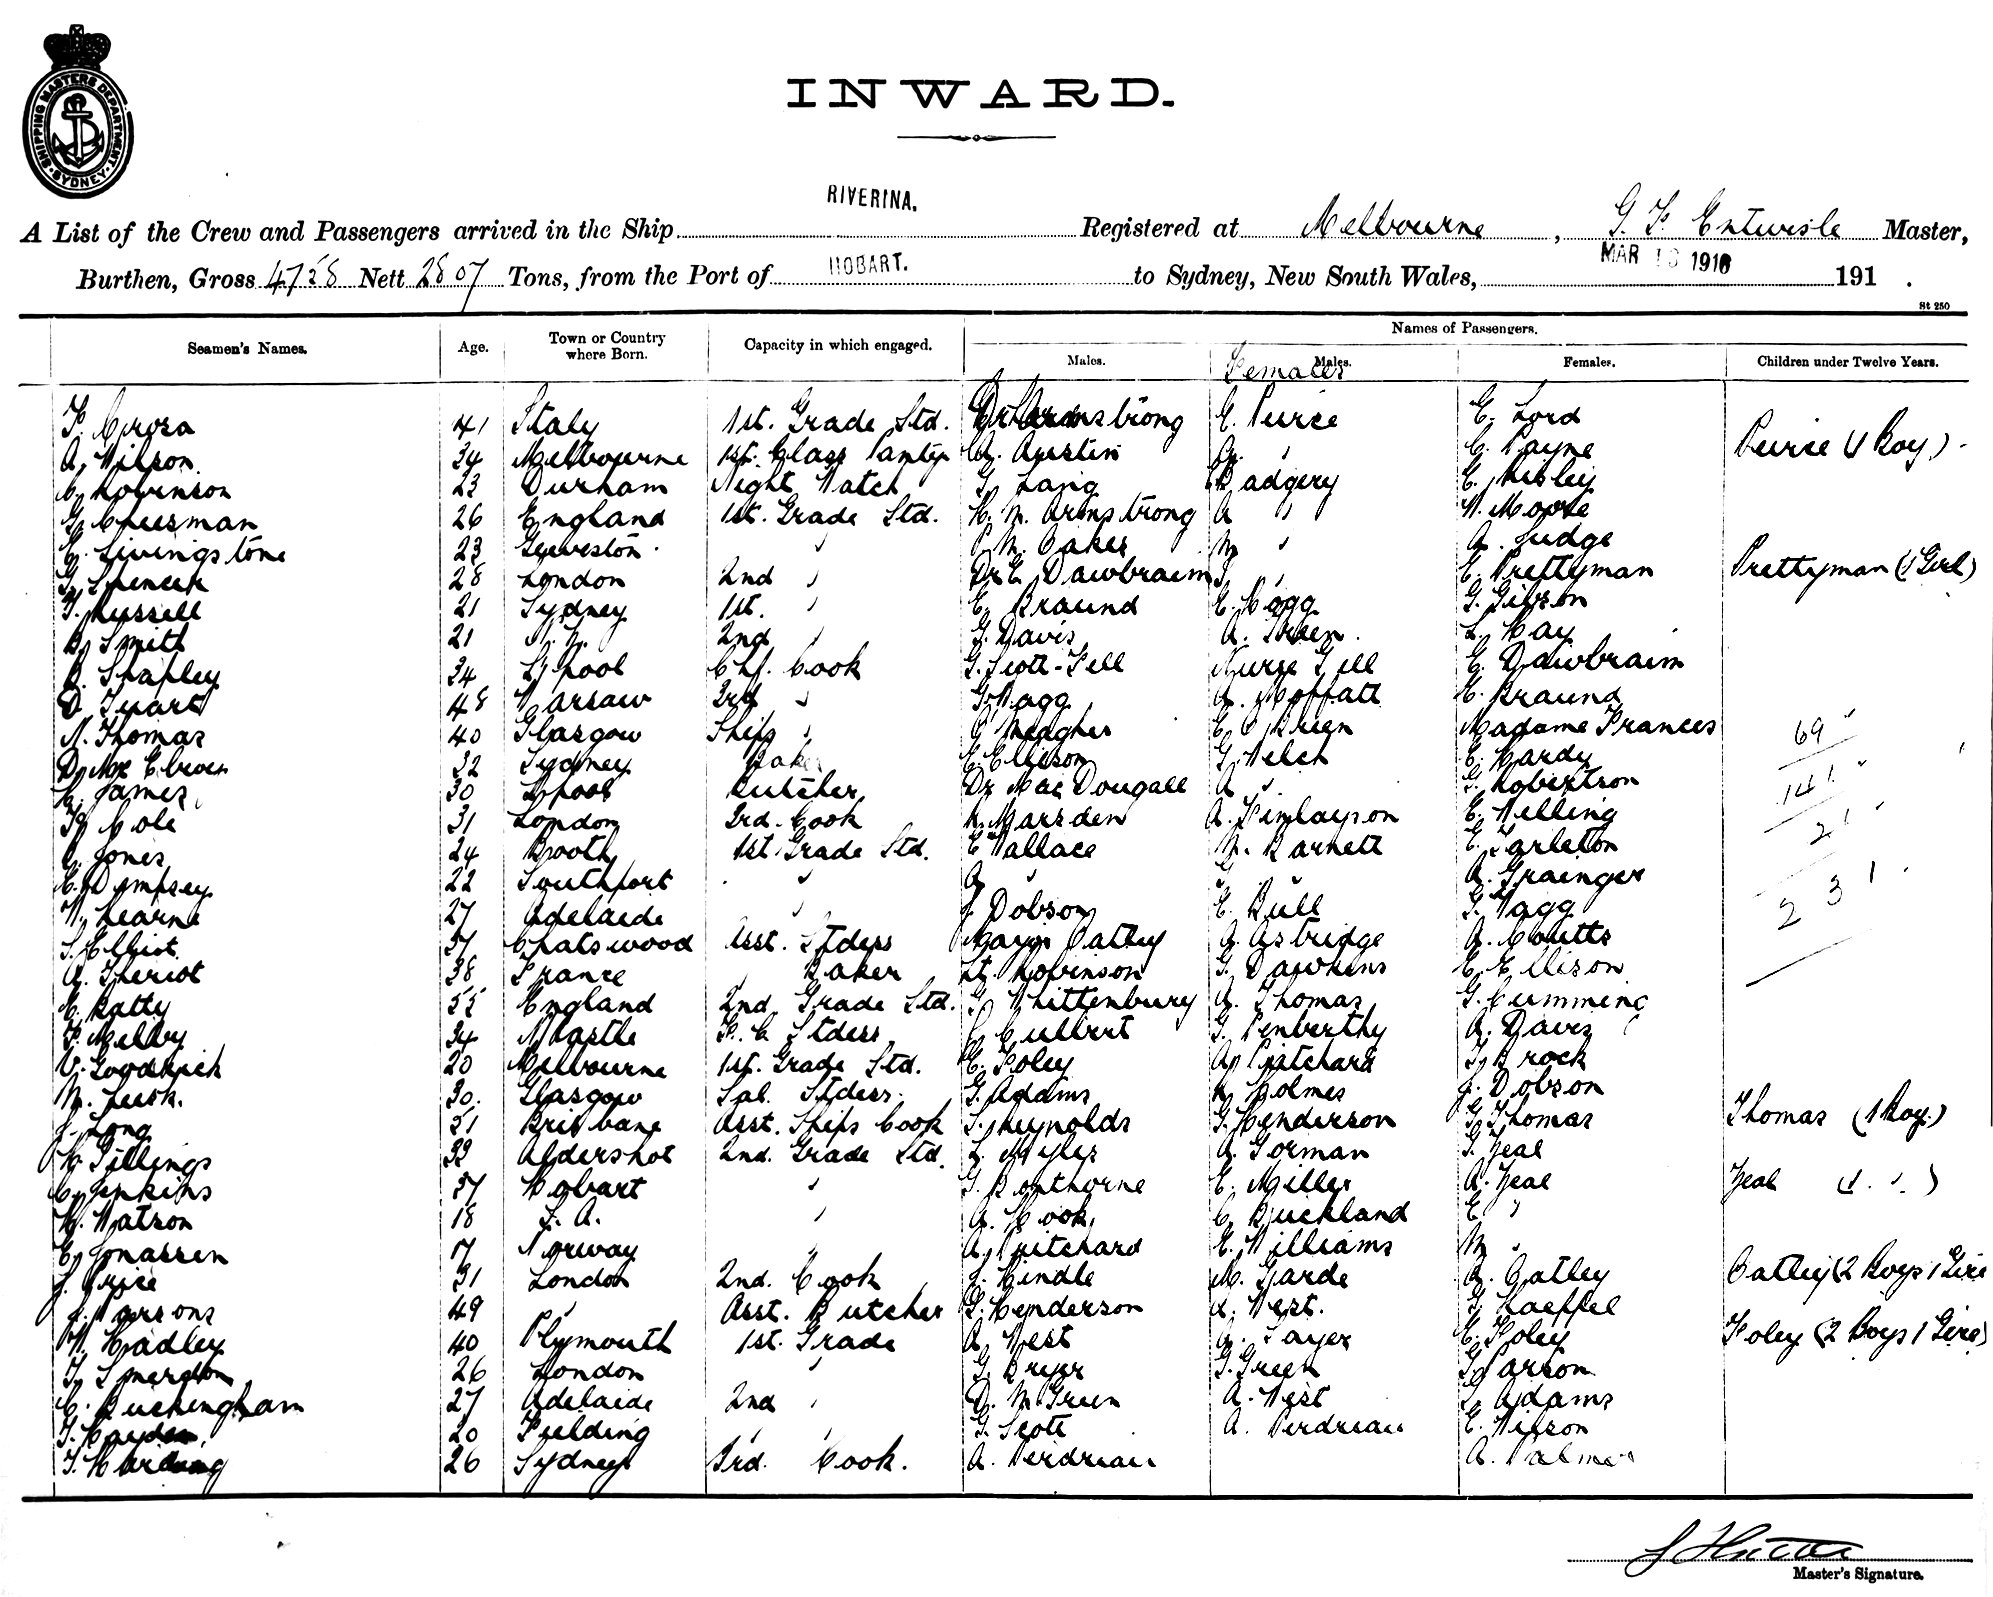 SHIPPING MASTERS DEPARTMENT
SYDNEY
INWARD.
RIVERINA.
A List of the Crew and Passengers arrived in the Ship Registered at Melbourne, G. F. Entwisle Master,
Burthen, Gross 4758 Nett 2807 Tons, from the Port of HOBART. to Sydney, New South Wales, MAR 1916 191 .
St 250
Seamen's Names. Age. Town or Country where Born. Capacity in which engaged. Names of Passengers.
Males. Males. Females Females. Children under Twelve Years.
41 Italy 1st. Grade Std. Armstrong E. Peirse E. Lord
A. Wilson. 34 Melbourne 1st. Class A. Austin A. " C. Payne Peirse (1 Boy)
C. Robinson 23 Durham Night Watch G. Laing Badgery E. Risley
G. Cheesman 26 England 1st. Grade Std. H. M. Armstrong A " W. Moore
C. Livingstone 23 Geeveston " P. M. Oakes M " A. Judge
G. Spencer 28 London 2nd " Dr E. Dawbrairn " E. Prettyman Prettyman (1 Girl)
T. Russell 21 Sydney 1st. " E. Braund E. Hogg G. Gibson
B. Smith 21 2nd " G. Davis A. Green L. Hay
A. Shapley 34 L'pool Chf. Cook G. Scott-Fell Nurse Gill E. Dawbrairn
D. 48 Warsaw 3rd " G. Wagg A. Moffatt E. Braund
N. Thomas 40 Glasgow Ships " G. Meagher E. O'Brien Madame Frances 69
32 Sydney Baker E. Ellison G. Welch E. Hardy
H. James 30 L'pool Butcher Dr MacDougall A " G. Robertson 141
F. Cole 31 London 3rd. Cook Marsden A. Finlayson E. Welling 21
C. Jones 24 Booth 1st. Grade Std. E. Wallace M. Barnett E. Tarleton
C. Dempsey 22 Southport " A " A. Grainger
W. Hearne 27 Adelaide " J. Dobson E. Bull G. Wagg 231
S. Elliot 37 Chatswood Asst. Stdess Major Oatley A. Asbridge A. Coutts
A. Theriot 38 France Baker Lt. Robinson G. Dawkins E. Ellison
E. Batty 55 England 2nd. Grade Std. G. Whittenbury A. Thomas G. Cumming
F. Melby 34 N'castle F. C. Stdess C. Culbert G. Penberthy A. Davis
V. 20 Melbourne 1st. Grade Std. E. Foley A. Pritchard T. Brock
M. Lusk. 30. Glasgow Sal. Stdess. G. Adams Holmes J. Dobson
J. Long 51 Brisbane Asst. Ships Cook S. Reynolds G. Henderson G. Thomas Thomas (1 Boy)
H. Gillings 33 Aldershot 2nd. Grade Std. L. Myles A. Gorman G. Zeal
C. Jenkins 37 Hobart " G. E. Miller A. Zeal Zeal (1 " )
H. Watson 18 S. A. " A. Hook C. Buckland E "
C. Jonassen Norway A. Pritchard E. Williams M "
J. Grice 31 London 2nd. Cook J. Hindle M. Garde A. Oatley Oatley (2 Boys 1 Girl
J. Parsons 49 " Asst. Butcher G. Henderson West. G. Loeffel
W. Hadley 40 Plymouth 1st. Grade A. West A. Sayer E. Foley Foley (2 Boys 1 Girl)
T. Smerdon 26 London " G. Bryer G. Green G. Parsons
C. Buckingham 27 Adelaide 2nd " D. M. Green A. West G. Adams
T. Hayden 20 Feilding " " G. Scott A. Perdriau E. Wilson
T. Harding 26 Sydney 3rd. Cook. A. Perdriau A. Palmer
Master's Signature.